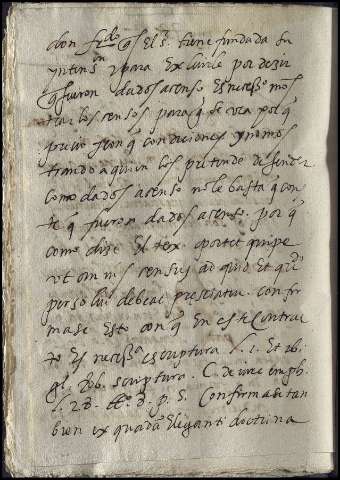 don fr.do q̃ El s. tiene fundada su
yntinon y para Excluirle por dezir
q̃ fueron dados acenso Es neress.o mos
trar los censos para q̃ se vea por q̃
precio y con q̃ condiciones y no mos
trando a quien los pretende defender
como dados acenso no le basta q̃ con
te q̃ fueron dados acenso. por q̃
como dize El tex. oportet quipe
vt omnis census ad quid Et q̃
persolui debeat presciatur. confir
mase Esto con q̃ En este Contrac
to Es neress.a escriptura l. 1. Et ibi
gl. scriptura. C. de iure emph.
l. 28. tt.o 8. p. 5. Confirmase tan
bien ex quadã Eleganti doctrina